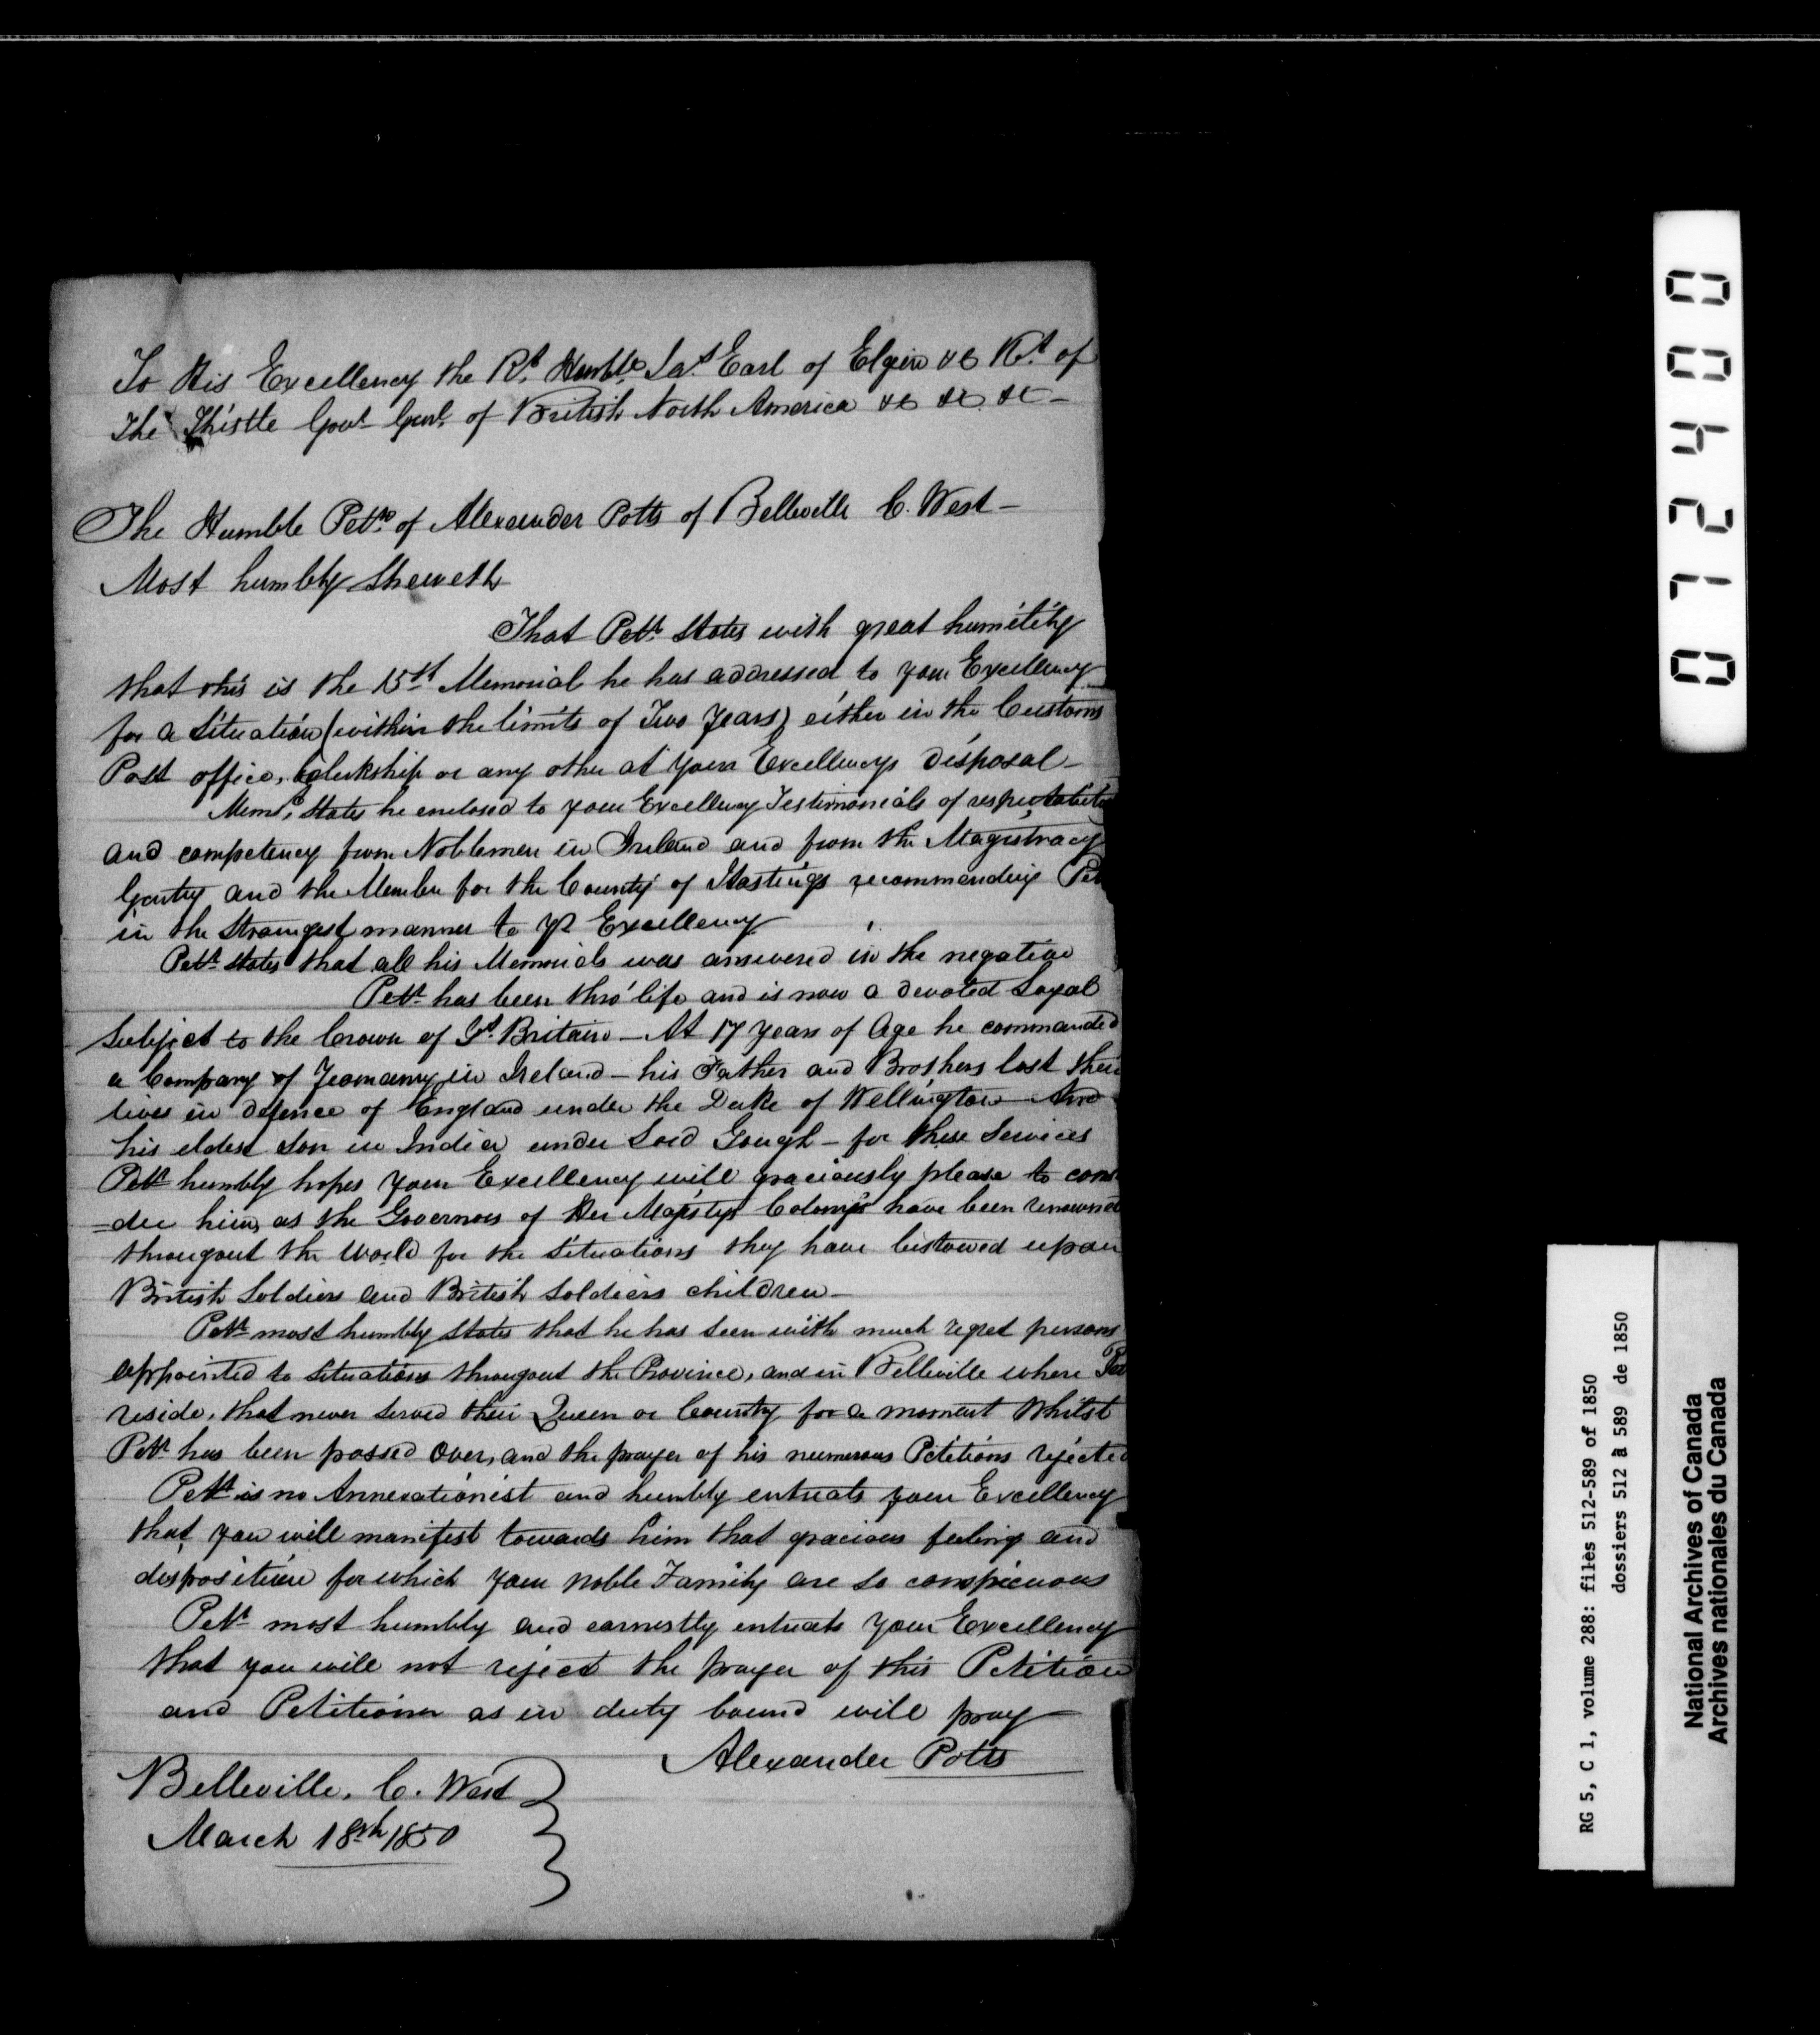 To His Excellency the Rt. Honble. Jas. Earl of Elgin &c Kt. of
The Thistle Govr. Genl. of British North America &c &c. &c —
The Humble Pettn. of Alexander Potts of Belleville C. West —
Most humbly Sheweth
That Pettr. States with great humility
that this is the 15th Memorial he has addressed to your Excellency
for a Situation (within the limits of Two Years) either in the Customs
Post office, clerkship or any other at your Excellencys disposal —
Meml. States he enclosed to your Excellency Testimonials of respectability
and competency from Noblemen in Ireland and from the Magistracy
Gentry and the Member for the County of Hastings recommending Pet
in the Strongest manner to yr Excellency
Pettr. States that all his Memorials was answered in the negative
Pettr. has been thro' life and is now a devoted Loyal
Subject to the Crown of Gt. Britain — At 17 years of Age he commanded
a Company of Yeomanry in Ireland — his Father and Brothers lost their
lives in defence of England under the Duke of Wellington — And
his eldest Son in India under Lord Gough — for these Services
Pettr. humbly hopes your Excellency will graciously please to consi
=der him, as the Governors of Her Majestys Colonys have been renowned
througout the World for the Situations they have bestowed upon
British Soldiers and British Soldiers children —
Pettr. most humbly States that he has seen with much regret persons
appointed to Situations througout the Province, and in Belleville where Pet
reside, that never Served their Queen or Country for a moment Whilst
Pettr. has been passed Over, and the prayer of his numerous Petitions rejected
Pettr. is no Annexationist and humbly entreats your Excellency
that, you will manifest towards him that gracious feeling and
disposition for which your Noble Family are so conspicuous
Pettr. most humbly and earnestly entreats your Excellency
that you will not reject the prayer of this Petition
and Petitioner as in duty bound will pray
Alexander Potts
Belleville, C. West
March 18th 1850
072400
RG 5, C 1, volume 288: files 512-589 of 1850
dossiers 512 à 589 de 1850
National Archives of Canada
Archives nationales du Canada